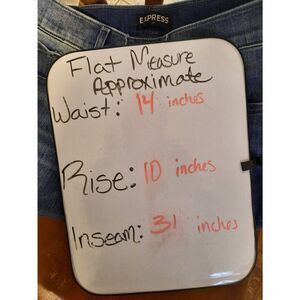 EXPRESS
Flat Measure
Approximate
Waist: 14 inches
Rise: 10 inches
Inseam: 31 inches